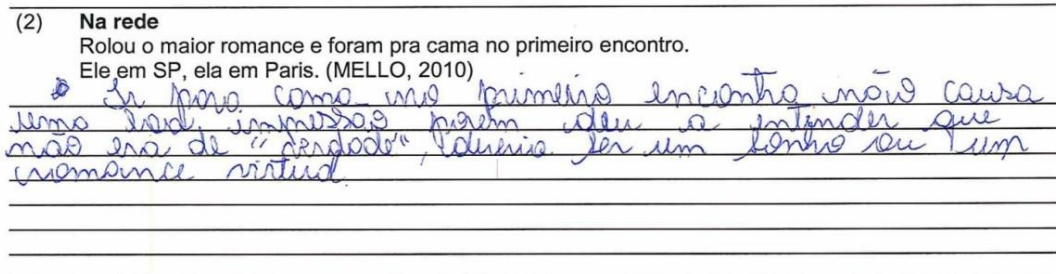 (2) Na rede
Rolou o maior romance e foram pra cama no primeiro encontro.
Ele em SP, ela em Paris. (MELLO, 2010)
Ir para cama no primeiro encontro não causa
uma boa impressão porém deu a entender que
não era de "verdade", deveria ser um sonho ou um
romance virtual.